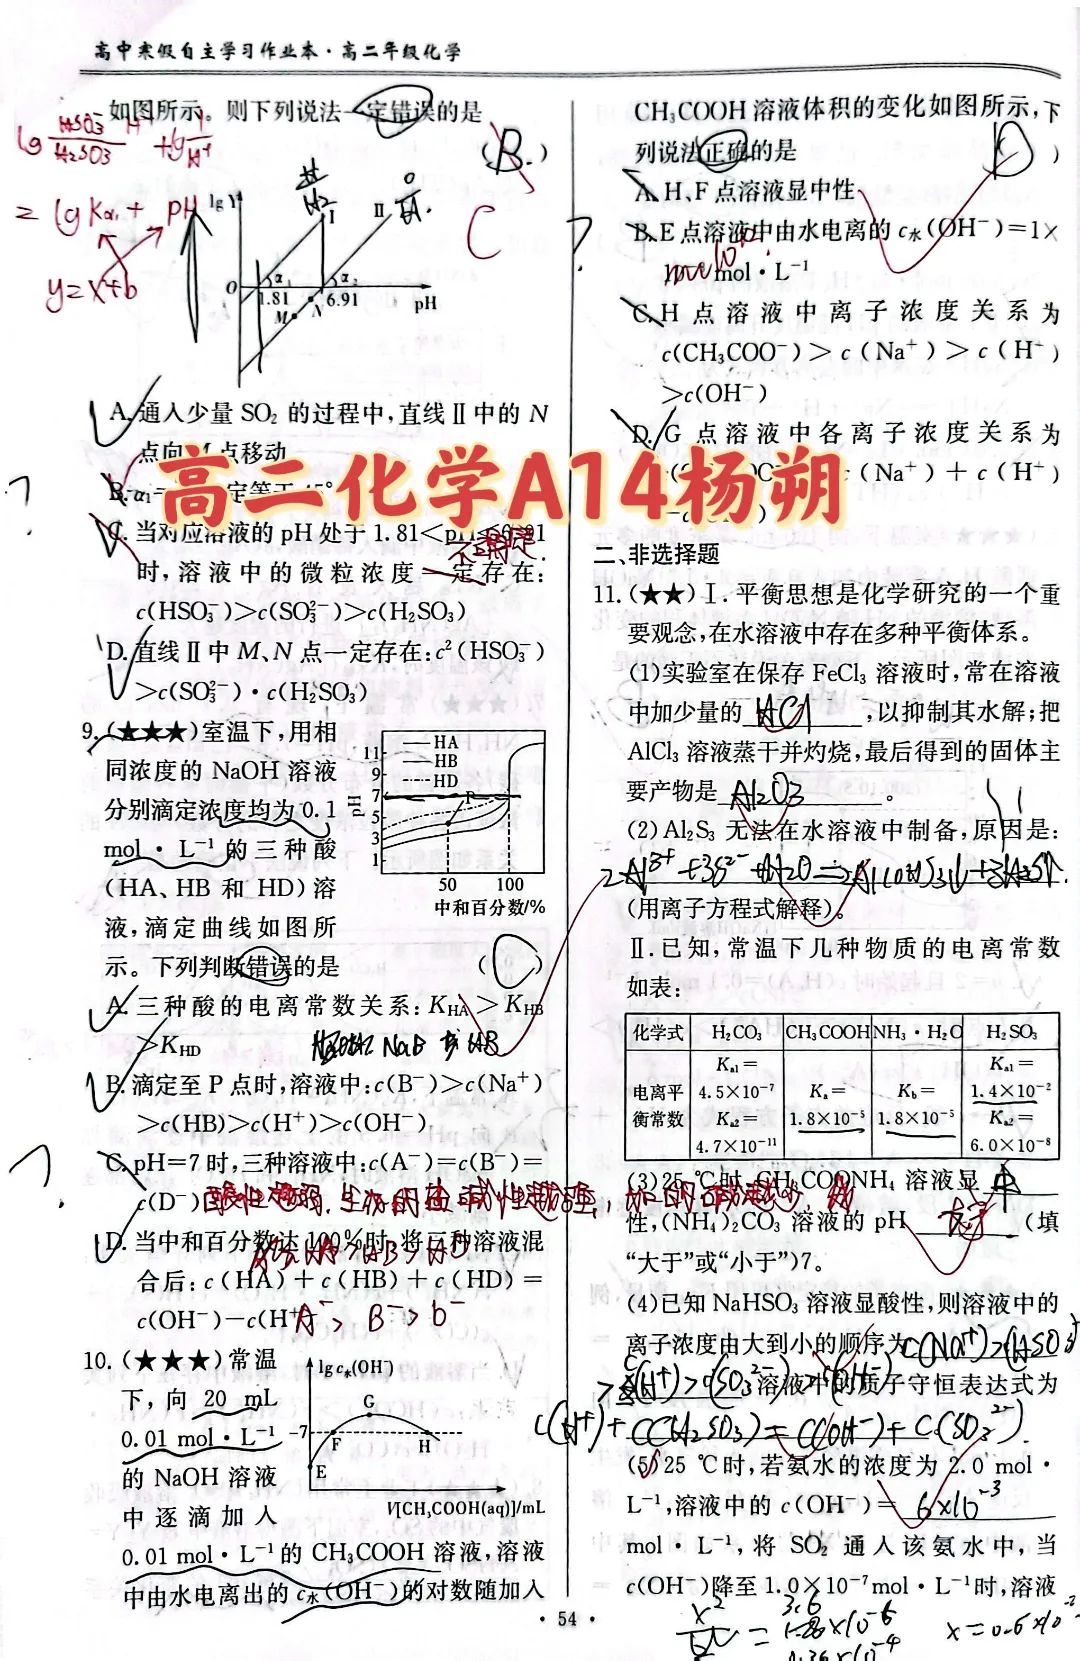 高中寒假自主学习作业本·高二年级化学
如图所示。则下列说法一定错误的是
(B.)
C
lg HSO₃⁻/H₂SO₃ + lg 1/H⁺
= lg Ka₁ + pH
y=x+b
lg Y
I
II
O
α₁
α₂
1.81
6.91
pH
M
N
A.通入少量 SO₂ 的过程中,直线Ⅱ中的 N
点向 M 点移动
当对应溶液的 pH 处于 1.81<pH≤6.91
不确定
时,溶液中的微粒浓度一定存在:
c(HSO₃⁻)>c(SO₃²⁻)>c(H₂SO₃)
D.直线Ⅱ中 M、N 点一定存在:c²(HSO₃⁻)
>c(SO₃²⁻)·c(H₂SO₃)
9.(★★★)室温下,用相
同浓度的 NaOH 溶液
分别滴定浓度均为 0.1
mol·L⁻¹的三种酸
(HA、HB 和 HD)溶
液,滴定曲线如图所
示。下列判断错误的是
( C )
HA
HB
HD
pH
11
9
7
5
3
1
P
50 100
中和百分数/%
A.三种酸的电离常数关系:K_HA>K_HB
>K_HD
NaB HB
B.滴定至 P 点时,溶液中:c(B⁻)>c(Na⁺)
>c(HB)>c(H⁺)>c(OH⁻)
C.pH=7 时,三种溶液中:c(A⁻)=c(B⁻)=
c(D⁻)
酸性越弱,生成的盐碱性越强,加的碱越少,
D.当中和百分数达 100%时,将三种溶液混
HA>HB>HD
合后:c(HA)+c(HB)+c(HD)=
c(OH⁻)-c(H⁺)
A⁻> B⁻> D⁻
10.(★★★)常温
下,向 20 mL
0.01 mol·L⁻¹
的 NaOH 溶液
中逐滴加入
0.01 mol·L⁻¹的 CH₃COOH 溶液,溶液
中由水电离出的 c水(OH⁻)的对数随加入
lg c水(OH⁻)
G
-7
F
H
E
V[CH₃COOH(aq)]/mL
CH₃COOH 溶液体积的变化如图所示,下
列说法正确的是
( D )
A.H、F 点溶液显中性
B.E 点溶液中由水电离的 c水(OH⁻)=1×
10⁻¹² mol·L⁻¹
C.H 点溶液中离子浓度关系为
c(CH₃COO⁻)>c(Na⁺)>c(H⁺)
>c(OH⁻)
D.G 点溶液中各离子浓度关系为
c(Na⁺)+c(H⁺)
高二化学A14杨朔
二、非选择题
11.(★★)Ⅰ.平衡思想是化学研究的一个重
要观念,在水溶液中存在多种平衡体系。
(1)实验室在保存 FeCl₃ 溶液时,常在溶液
中加少量的 HCl ,以抑制其水解;把
AlCl₃ 溶液蒸干并灼烧,最后得到的固体主
要产物是 Al₂O₃ 。
(2)Al₂S₃ 无法在水溶液中制备,原因是:
2Al³⁺+3S²⁻+H₂O=2Al(OH)₃↓+3H₂S↑
(用离子方程式解释)。
Ⅱ.已知,常温下几种物质的电离常数
如表:
化学式 H₂CO₃ CH₃COOH NH₃·H₂O H₂SO₃
电离平衡常数 Ka1=4.5×10⁻⁷ Ka2=4.7×10⁻¹¹ Ka=1.8×10⁻⁵ Kb=1.8×10⁻⁵ Ka1=1.4×10⁻² Ka2=6.0×10⁻⁸
(3)25 ℃时,CH₃COONH₄ 溶液显 中
性,(NH₄)₂CO₃ 溶液的 pH 大于 (填
“大于”或“小于”)7。
(4)已知 NaHSO₃ 溶液显酸性,则溶液中的
离子浓度由大到小的顺序为 c(Na⁺)>c(HSO₃⁻)
>c(H⁺)>c(SO₃²⁻)>c(OH⁻) 溶液中的质子守恒表达式为
c(H⁺)+c(H₂SO₃)=c(OH⁻)+c(SO₃²⁻).
(5)25 ℃时,若氨水的浓度为 2.0 mol·
L⁻¹,溶液中的 c(OH⁻)= 6×10⁻³
mol·L⁻¹,将 SO₂ 通入该氨水中,当
c(OH⁻)降至 1.0×10⁻⁷mol·L⁻¹时,溶液
·54·